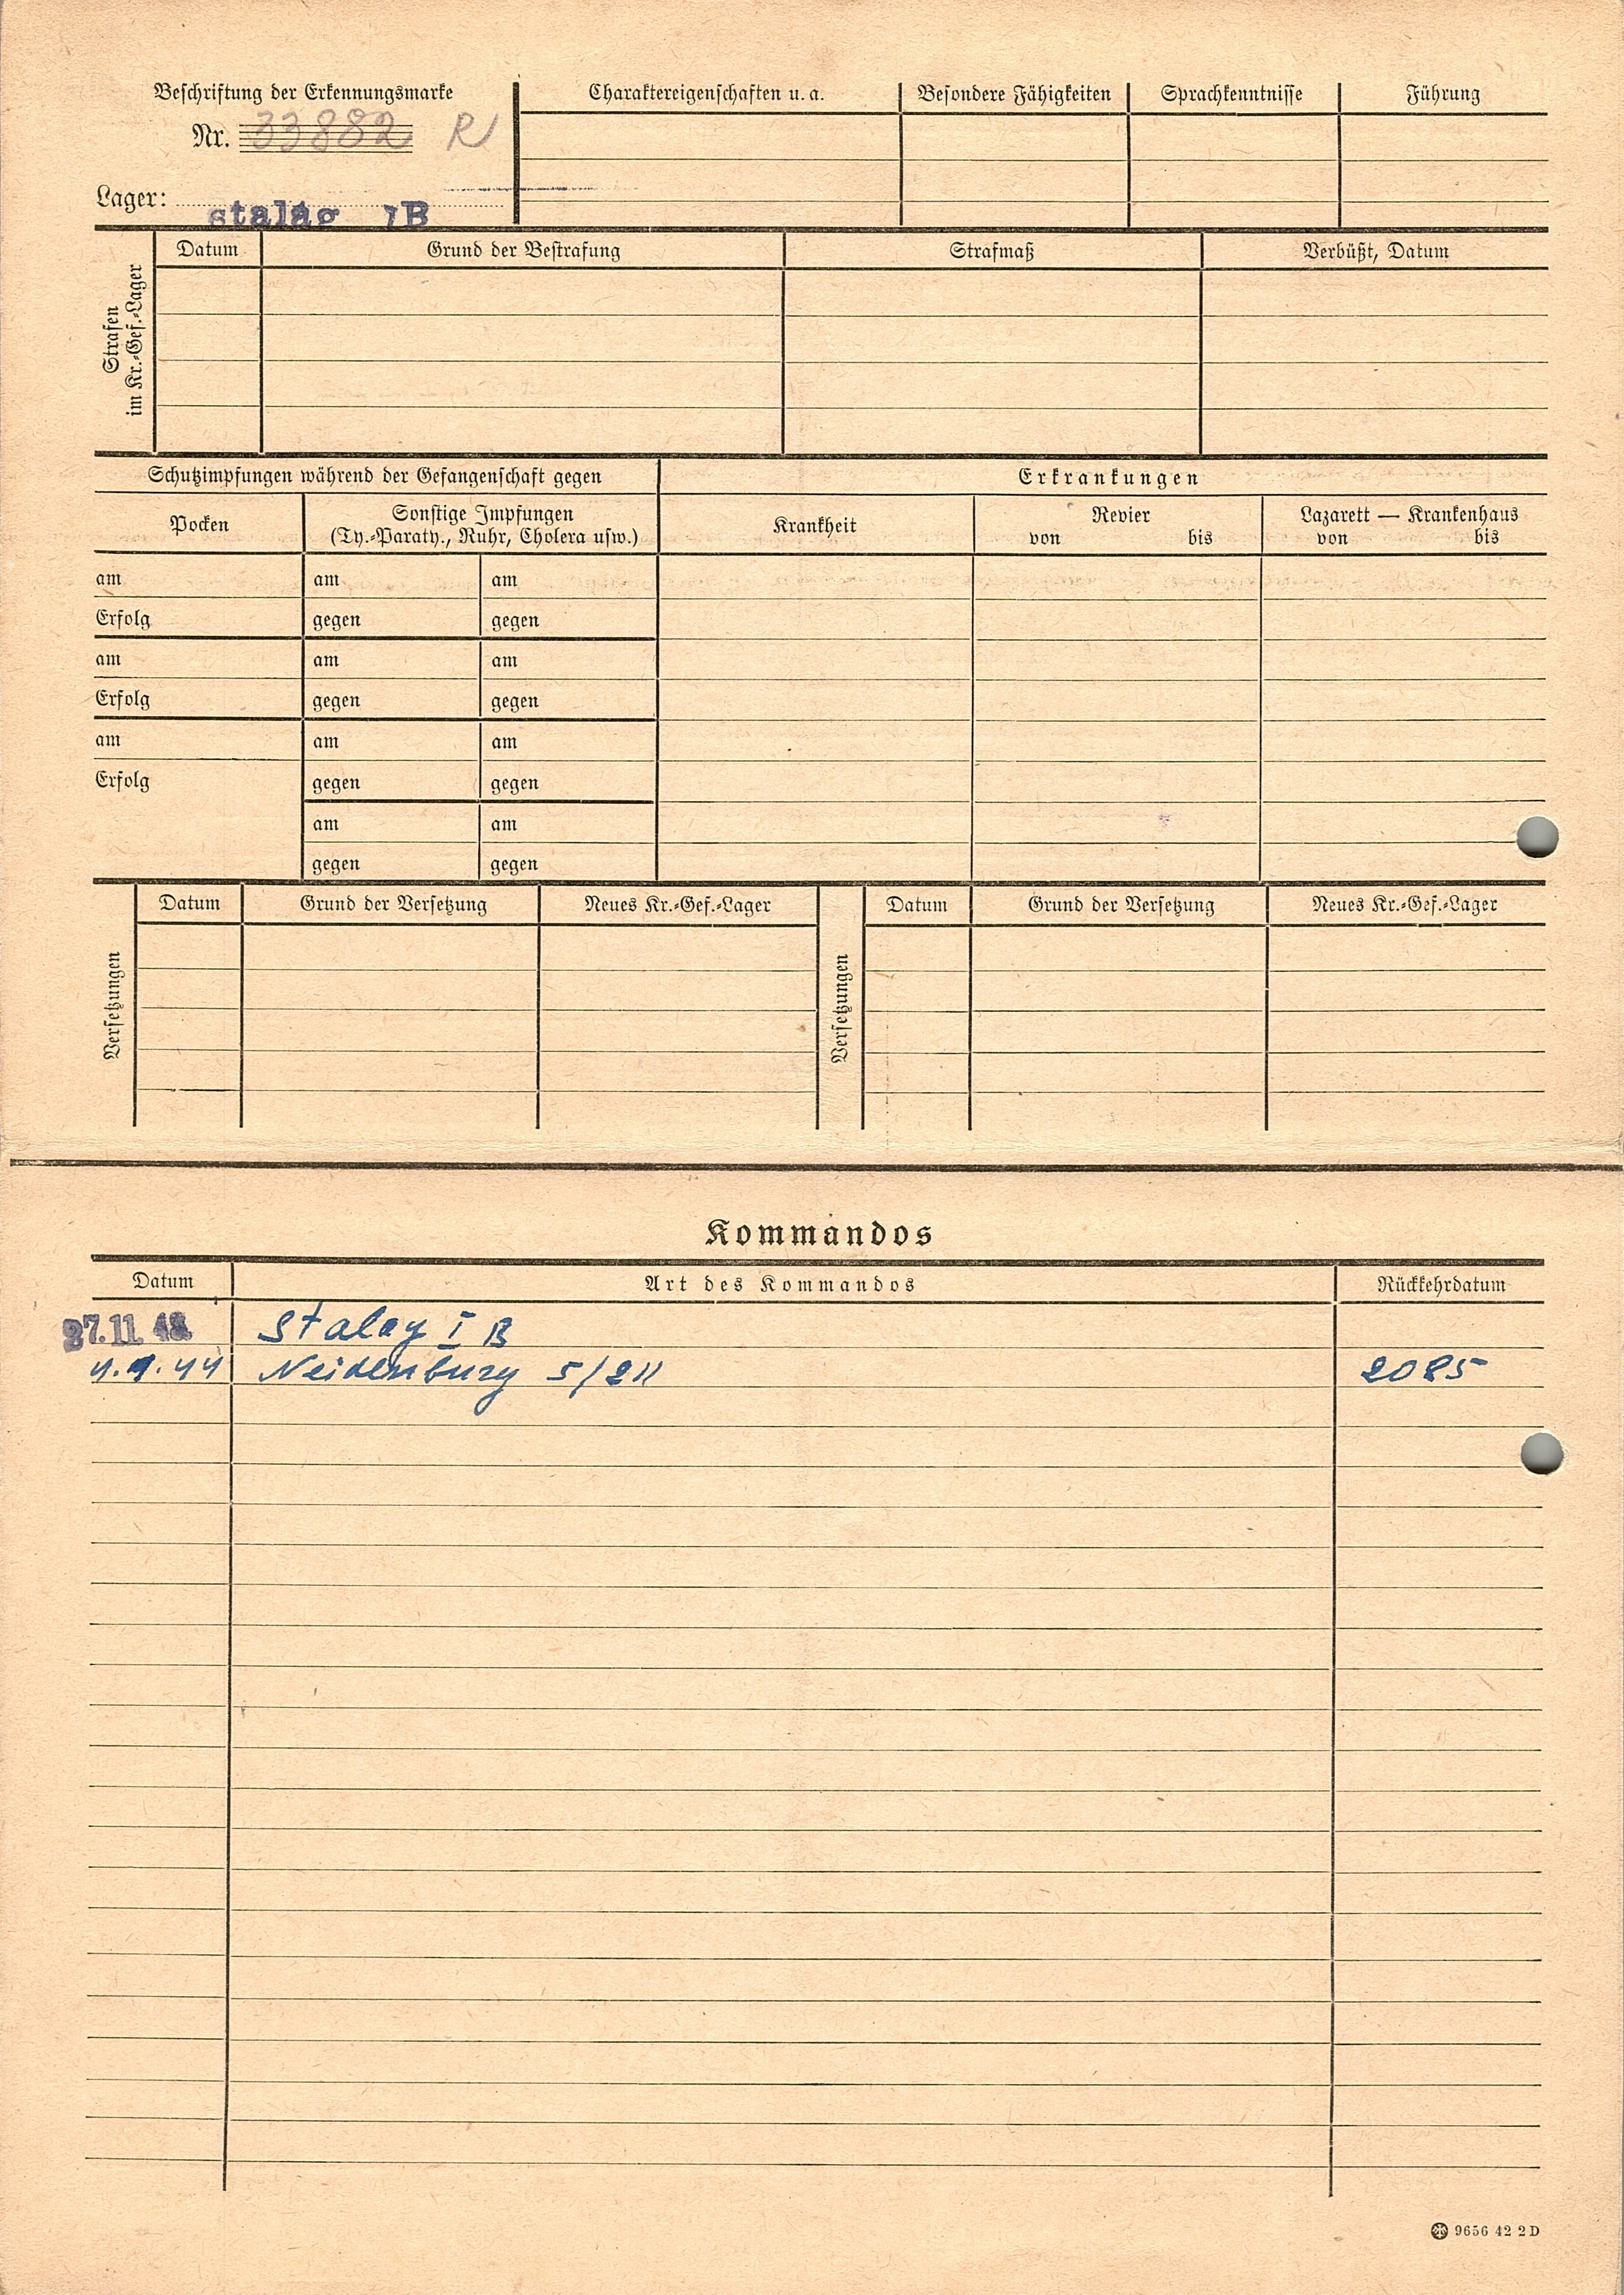 Beschriftung der Erkennungsmarke
Nr. 33882 R
Lager: stalag IB
Charaktereigenschaften u. a.
Besondere Fähigkeiten
Sprachkenntnisse
Führung
Strafen im Kr.-Gef.-Lager
Datum
Grund der Bestrafung
Strafmaß
Verbüßt, Datum
Schutzimpfungen während der Gefangenschaft gegen
Erkrankungen
Pocken
Sonstige Impfungen
(Ty.-Paraty., Ruhr, Cholera usw.)
Krankheit
Revier
von bis
Lazarett — Krankenhaus
von bis
am am am
Erfolg gegen gegen
am am am
Erfolg gegen gegen
am am am
Erfolg gegen gegen
am am
gegen gegen
Versetzungen
Datum
Grund der Versetzung
Neues Kr.-Gef.-Lager
Versetzungen
Datum
Grund der Versetzung
Neues Kr.-Gef.-Lager
Kommandos
Datum Art des Kommandos Rückkehrdatum
Stalag I B
Neidenburg 5/211 2085
9656 42 2 D